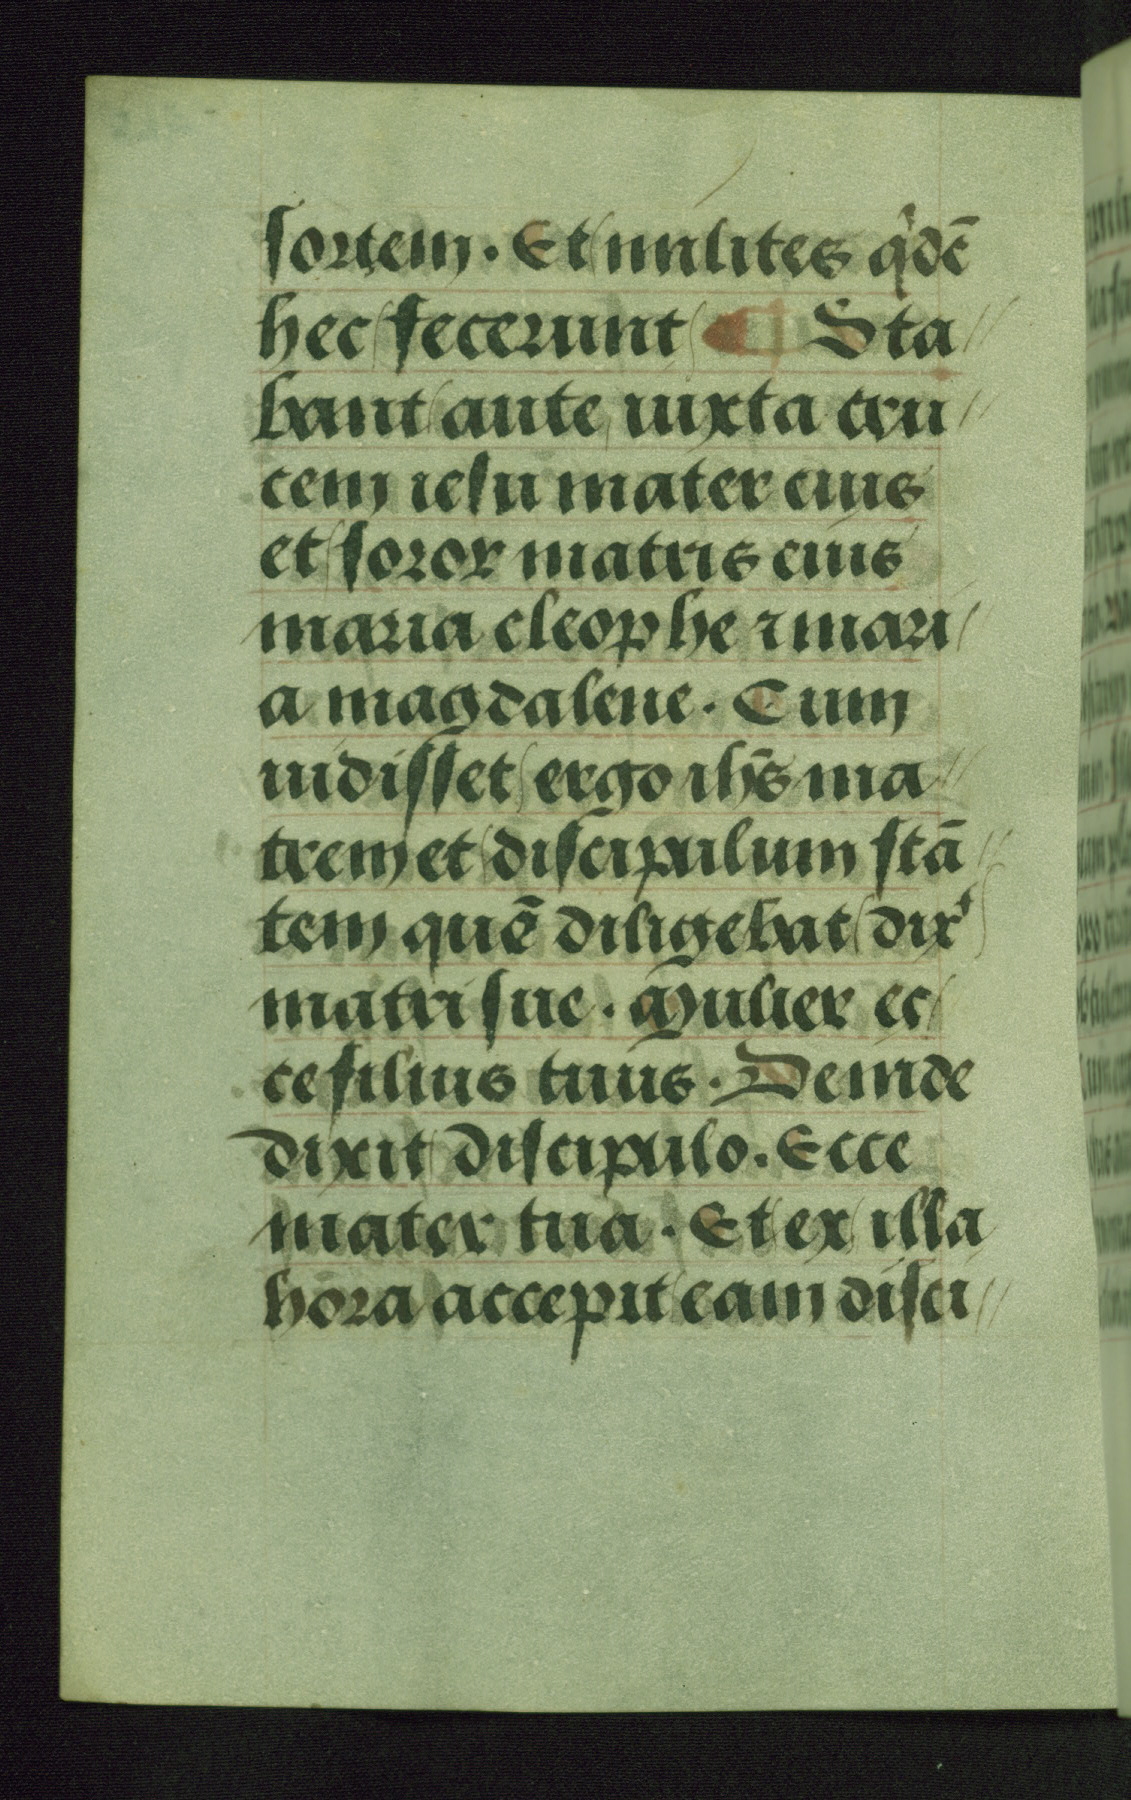 sortem. Et milites q'dē
hec fecerunt Sta//
bant ante iuxta cru//
cem iesu mater eius
et soror matris eius
maria cleophe ⁊ mari/
a magdalene. Cum
uidisset ergo ihs̄ ma//
trem et discipulum stā//
tem quē diligebat dixͭ
matri sue. Mulier ec/
ce filius tuus. Deinde
dixit discipulo. Ecce
mater tua. Et ex illa
hora accepit eam disci//